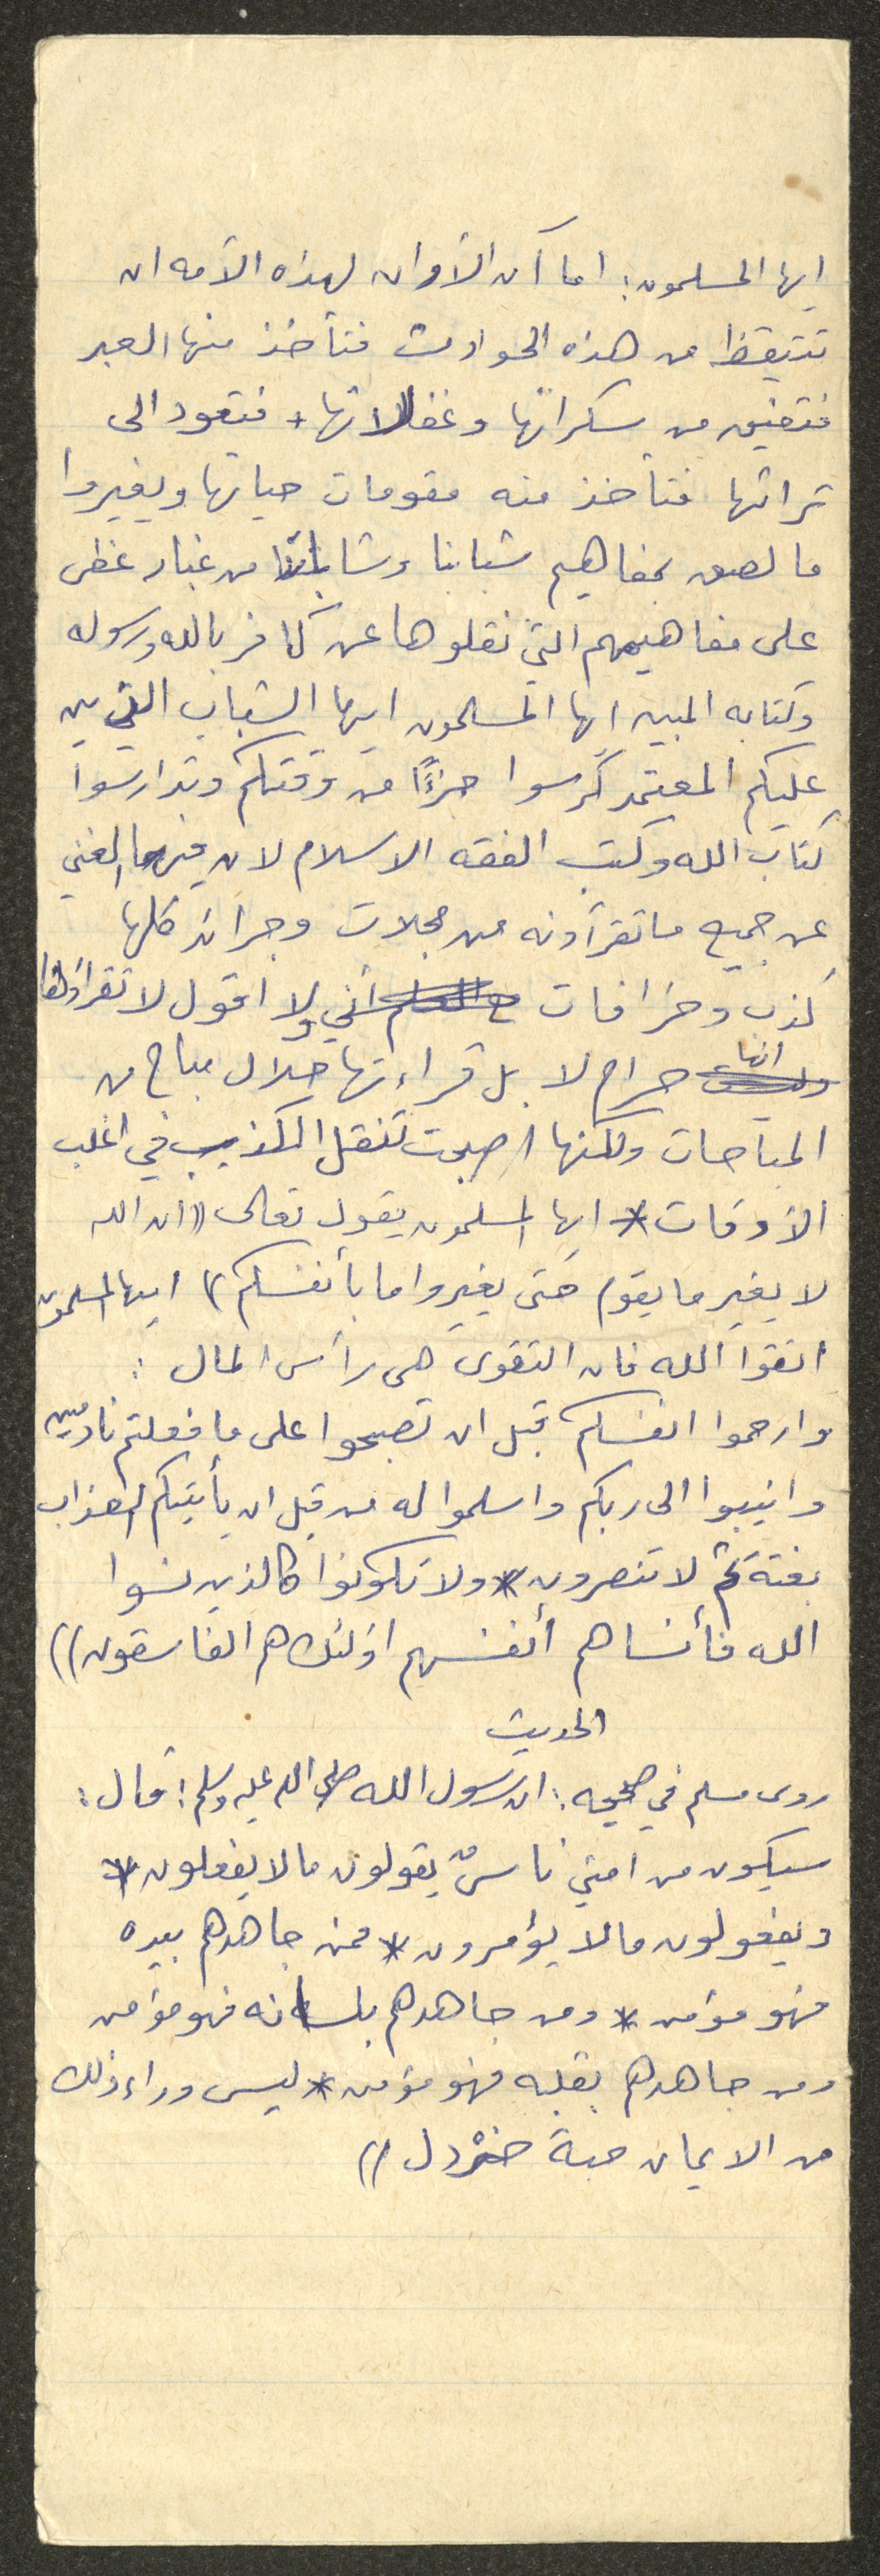 ايها المسلمون: اما آن الأوان لهذه الأمه ان
تتيقظ من هذه الحوادث فتأخذ منها العبر
فتفيق من سكراتها وغفلاتها + فتعود الى
تراثها فتأخذ منه مقومات حياتها ويغيروا
ما لصق بمفاهيم شبابنا وشاباتنا من غبار غطى
على مفاهيمهم التي نقلوها عن كافر بالله ورسوله
وكتابه المبين ايها المسلمون ايها الشباب الذين
عليكم المعتمد كرسوا جزءًا من وقتكم وتدارسوا
كتاب الله وكتب الفقه الاسلام لان فيها الغني
عن جميع ما تقرأونه من مجلات وجرائد كلها
كذب وخرافات اني ولا اقول لا تقرأوها
انها حرام لا بل قراءتها حلال مباح من
المباحات ولكنها اصبحت تنقل الكذب في اغلب
الأوقات * ايها المسلمون يقول تعالى ((ان الله
لا يغير ما بقوم حتى يغيروا ما بأنفسكم)) ايها المسلمون
اتقوا الله فان التقوى هي رأس المال :
وارحموا انفسكم قبل ان تصبحوا على ما فعلتم نادمين
وانيبوا الى ربكم واسلموا له من قبل ان يأتيكم العذاب
بغتة ثم لا تنصرون * ولا تكونوا كالذين نسوا
الله فأنساهم أنفسهم اولئك هم الفاسقون))
الحديث
روى مسلم في صحيحه: ان رسول الله صلى الله عليه وسلم: قال:
سيكون من امتي ناسٌ يقولون مالا يفعلون *
ويفعولون مالا يؤمرون * فمن جاهدهم بيده
فهو مؤمن * ومن جاهدهم بلسانه فهو مؤمن
ومن جاهدهم بقلبه فهو مؤمن * ليس وراء ذلك
من الايمان حبة خردل ))